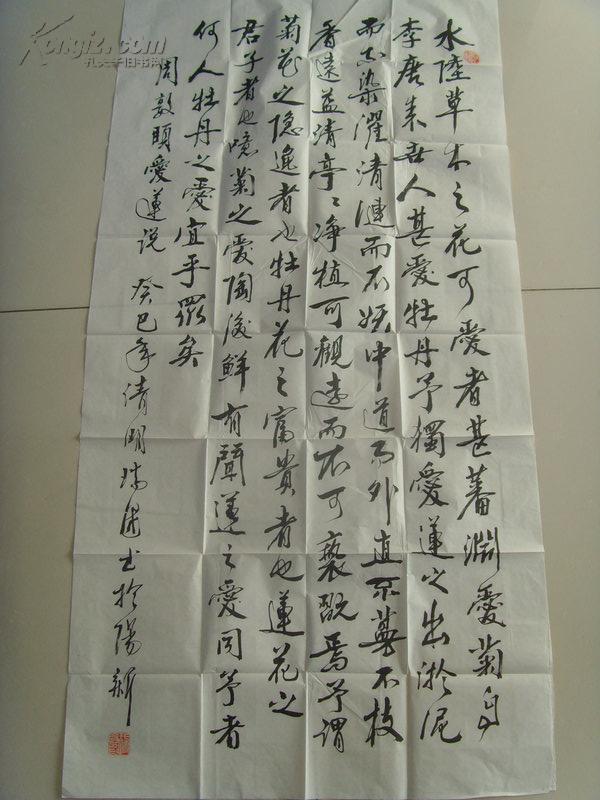 水陸草木之花可愛者甚蕃淵愛菊自
李唐来世人甚愛牡丹予獨愛蓮之出淤泥
而不染濯清漣而不妖中通而外直不蔓不枝
香遠益清亭〻净植可觀遠而不可褻翫焉予謂
菊花之隐逸者也牡丹花之富貴者也蓮花之
君子者也噫菊之愛陶後鮮有聞蓮之愛同予者
何人牡丹之愛宜乎眾矣
周敦頤愛蓮说 癸巳年清明书於陽新
Kongfz.com
孔夫子旧书网